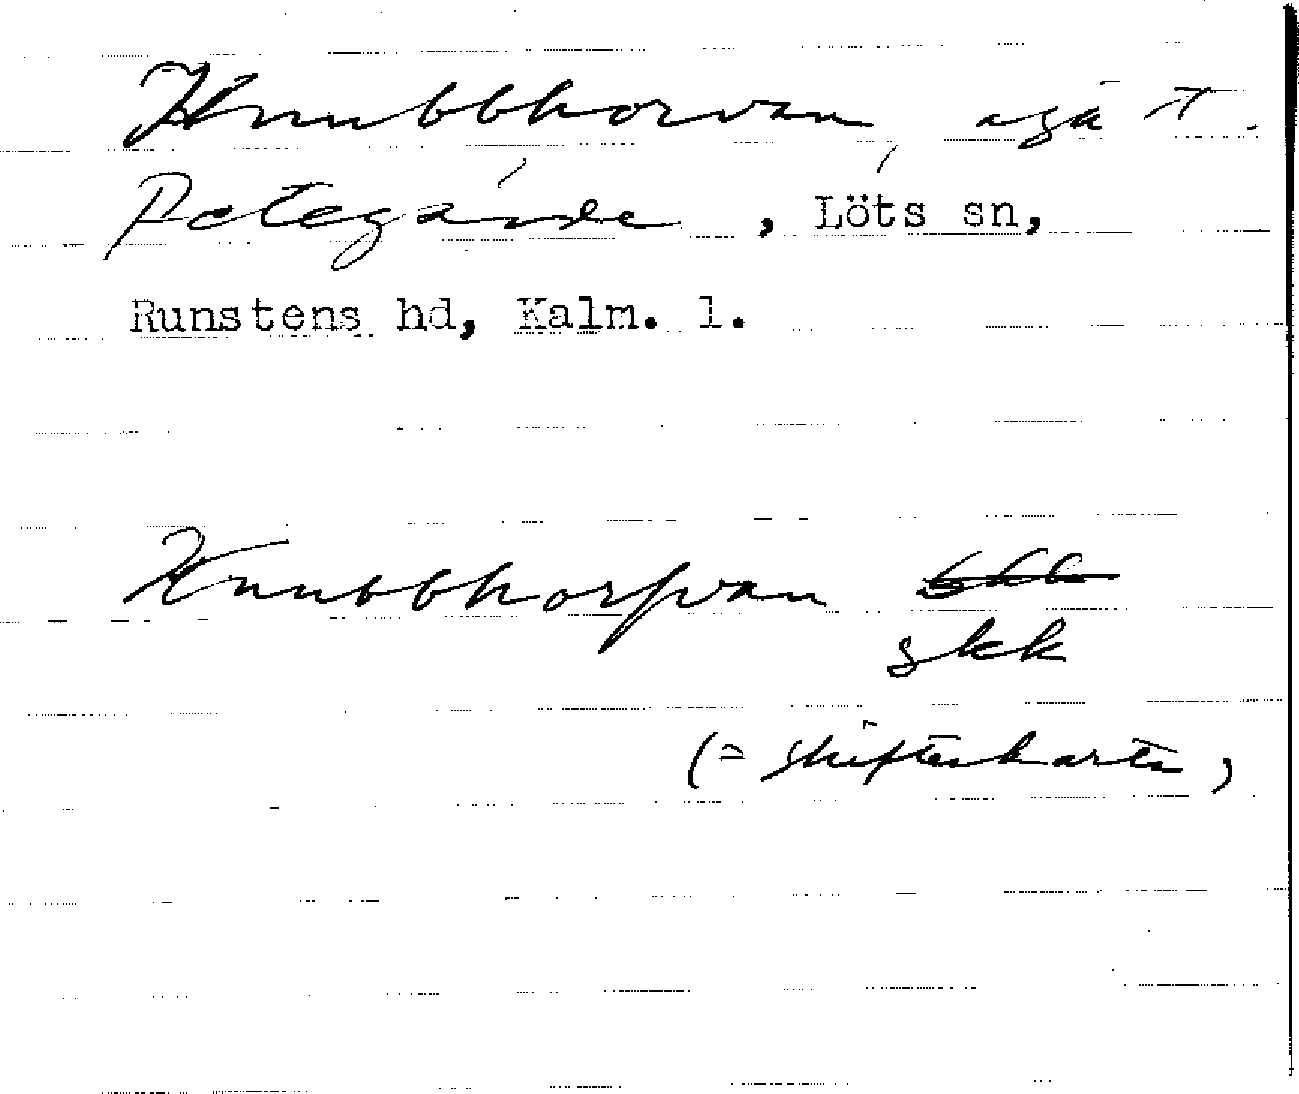 Knubbhorvan, ägå t.
Petegärde, Löts sn,
Runstens hd, Kalm. l.
Knubbhorfvan
skk
(= skifteskarta)